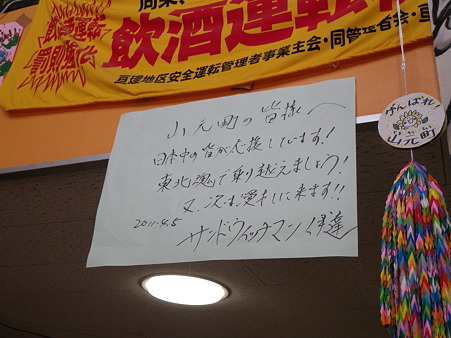 同業、
飲酒運転
飲酒運転
罰則強化
亘理地区安全運転管理者事業主会・同管理者会・亘
山元町の皆様へ
日本中の皆が応援しています!
東北魂で乗り越えましょう!
又、次も愛を
しに来ます!!
2011.4.5
サンドウィッチマン 伊達
がんばれ!
山元町